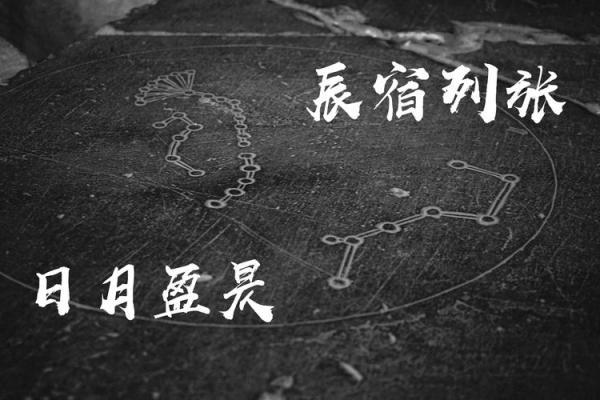 辰宿列张
日月盈昃